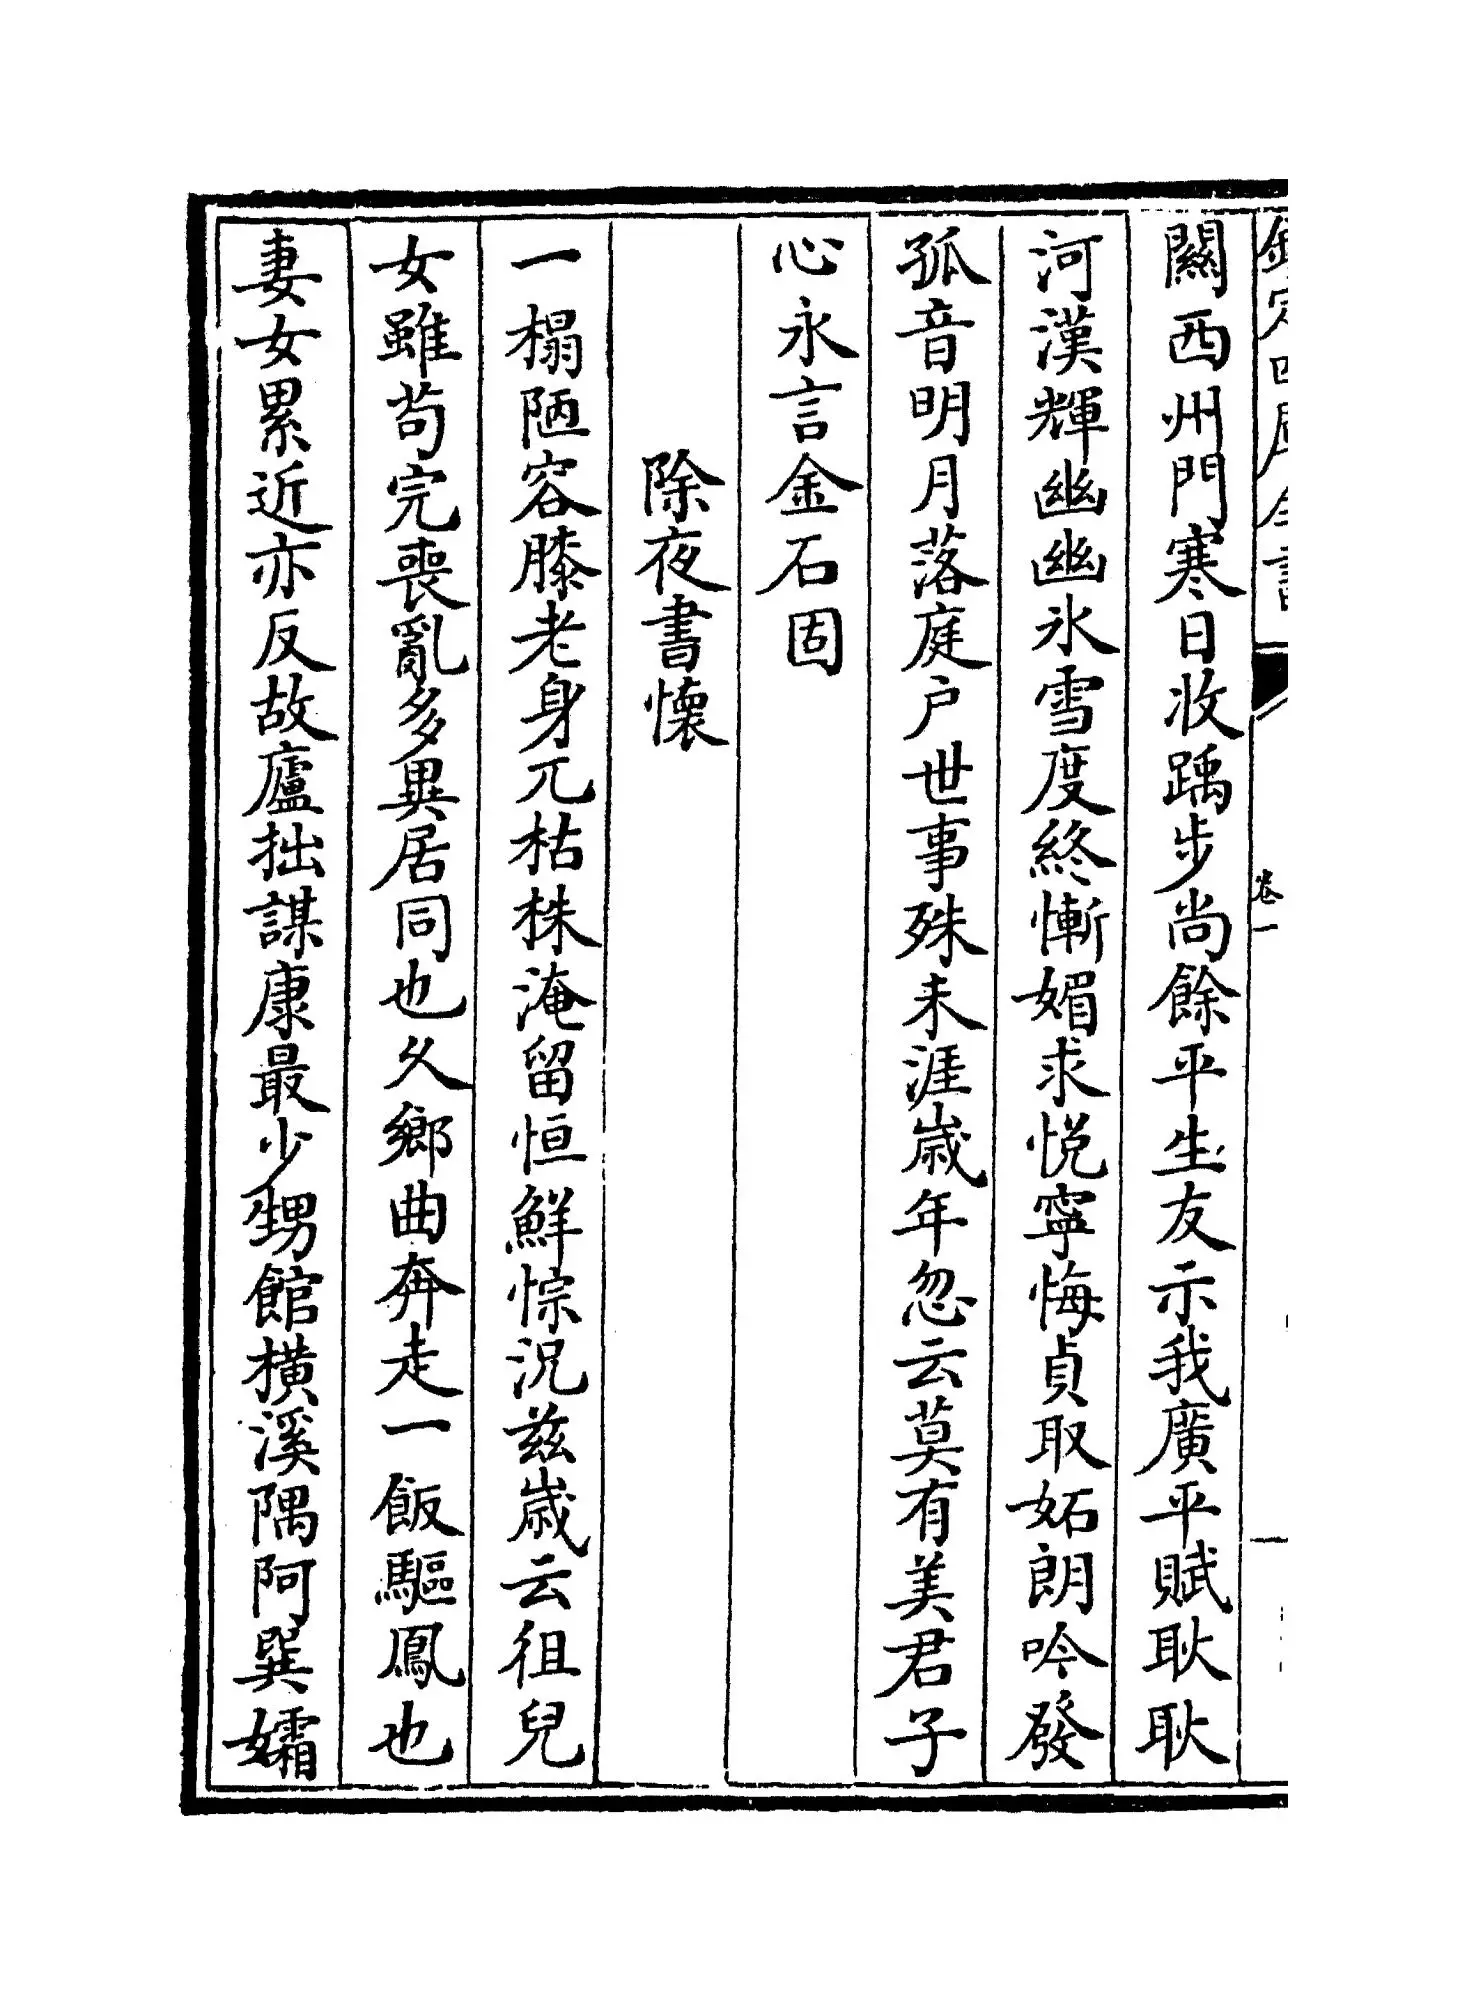 欽定四庫全書
卷一
闗西州門寒日收踽步尚餘平生友示我廣平賦耿耿
河漢輝幽幽氷雪度終慚媚求悦寧悔貞取妬朗吟發
孤音明月落庭户世事殊未涯歳年忽云莫有美君子
心永言金石固
除夜書懷
一榻陋容膝老身兀枯株淹留恒鮮悰況兹歳云徂兒
女雖苟完喪亂多異居同也久鄉曲奔走一飯驅鳳也
妻女累近亦反故廬拙謀康最少甥館橫溪隅阿巽孀